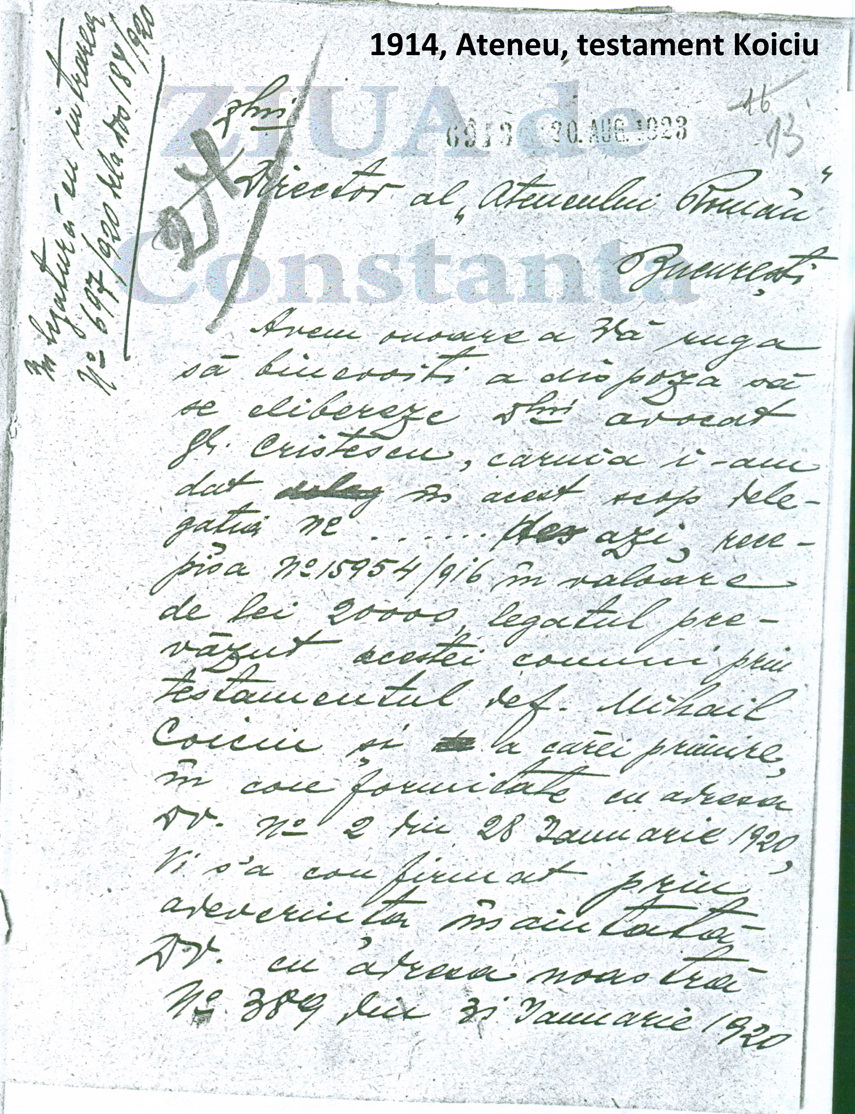 1914, Ateneu, testament Koiciu
ZIUA de
Constanta
În legatură cu intrarea
No 697/920 dela dos 184/920
16
13
69136 20. AUG. 1923
24
Dlui
Director al „Ateneului Român"
București
Avem onoare a Vă ruga
să binevoiti a dispoza să
se elibereze Dlui avocat
Gh. Cristescu, caruia i-am
dat deleg în acest scop dele-
gatia No ....... des azi, rece-
pisa No 15954/916 în valoare
de lei 20000, legatul pre-
văzut acestei comuni prin
testamentul def. Mihail
Coiciu și a cărei primire,
în conformitate cu adresa
Dv. No 2 din 28 Ianuarie 1920,
Vi s'a confirmat prin
adeverința înaintată
Dv. cu adresa noastră
No 389 din 31 Ianuarie 1920